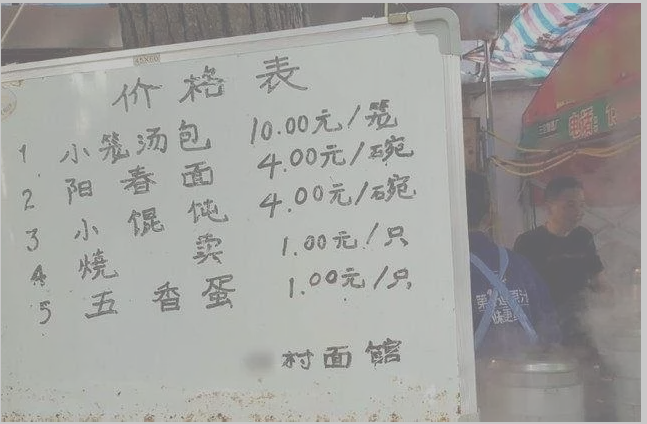 45X60
价格表
1 小笼汤包 10.00元/笼
2 阳春面 4.00元/碗
3 小馄饨 4.00元/碗
4 烧卖 1.00元/只
5 五香蛋 1.00元/只
村面馆
电话: 1